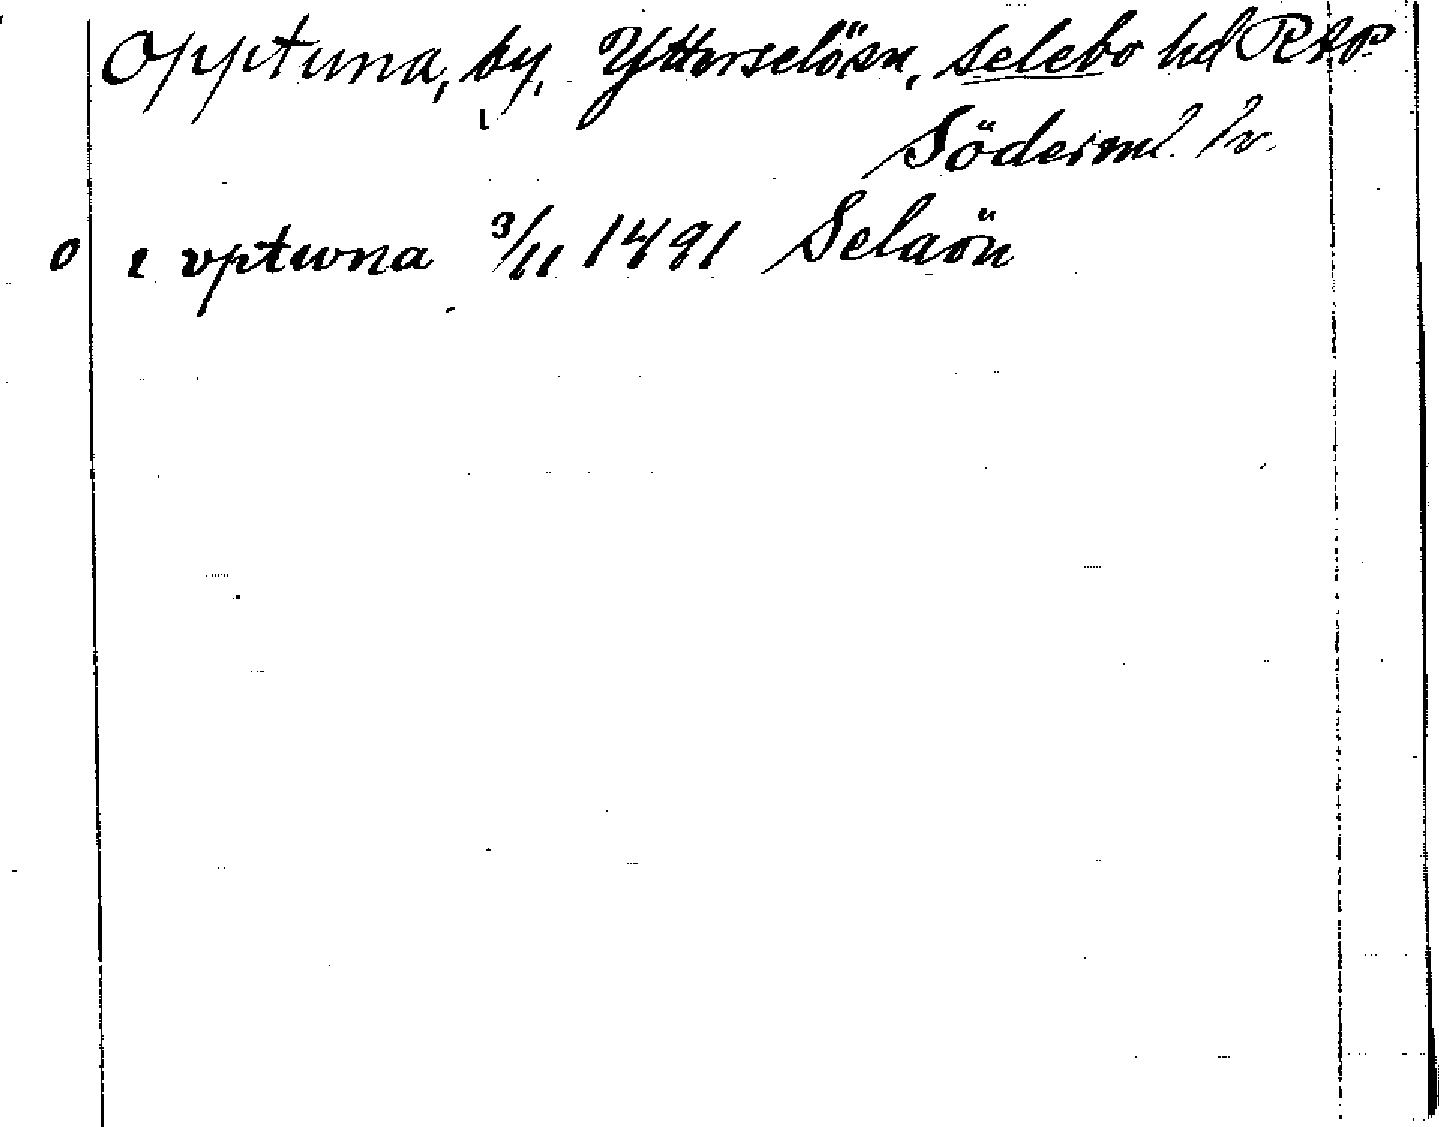 Opptuna, by, Ytterselösn, Selebo hd RAP
Söderml. lv.
o i vptwna 3/11 1491 Selaön